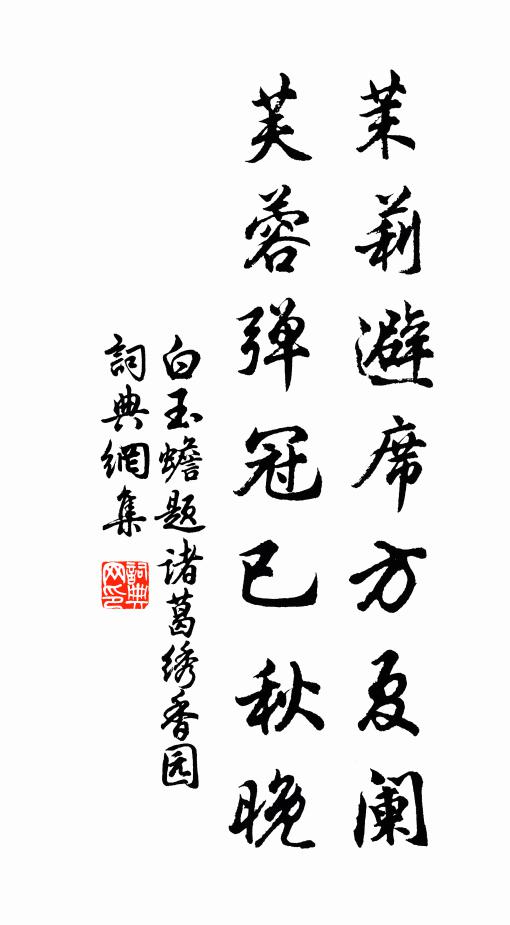 茉莉避席方夏阑
芙蓉弹冠已秋晚
白玉蟾题诸葛绣香园
詞典網集
詞典网印